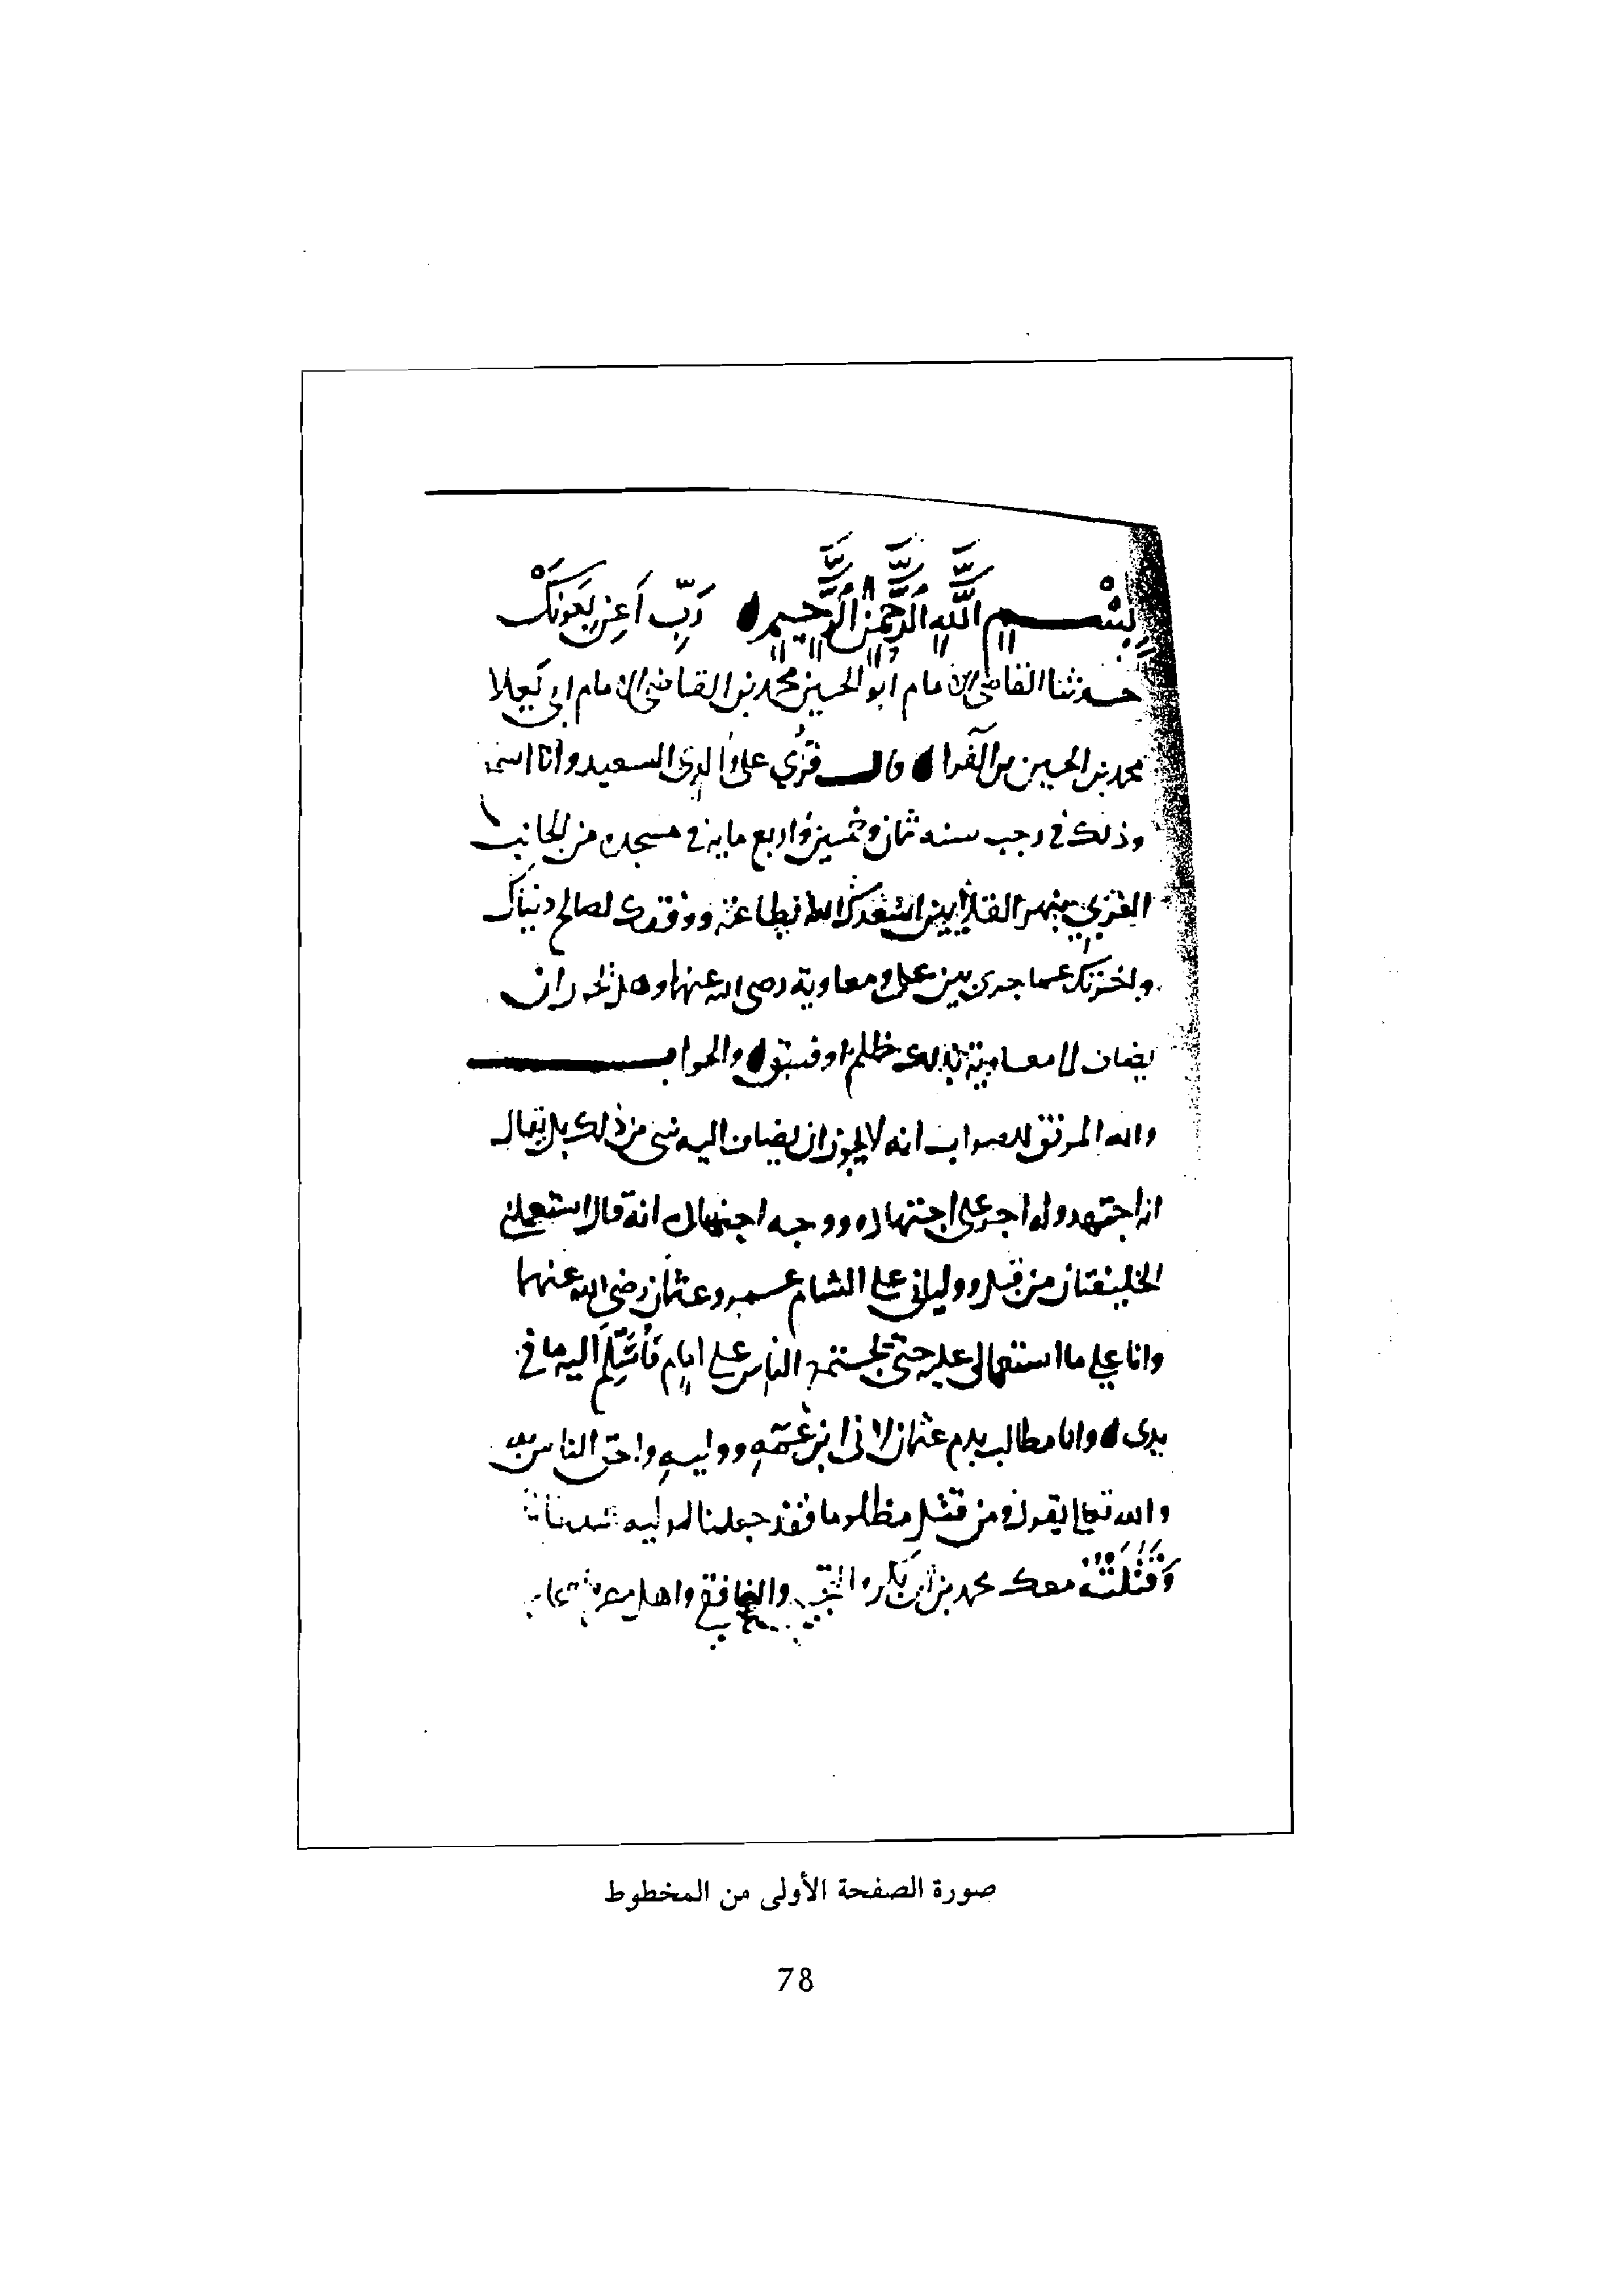 بِسْمِ اللَّهِ الرَّحْمَنِ الرَّحِيمِ رَبِّ أَعِن بِعَونِكْ
حدثنا القاضي الامام ابو الحسين محمد بن القاضي الامام ابي يَعلا
محمد بن الحسين بن الفَرا قال قُرِي على والدي السعيد وانا اسمع
وذلك في رجب سنه ثمان وخمسين واربع مايه في مسجده من الجانب
الغزبي بنهر القلايين اسْعَدكَ الله بطاعته ووفقك لصالح دنياك
واخرتك عما جرى بين علي ومعاوية رضي الله عنهما وهل يجوز ان
يضاف لا معاوية بذلك ظلم او فسق والجواب
والله الموفق للصواب انه لا يجوز ان يضاف اليه شي من ذلك بل يقال
انه اجتهد وله اجر على اجتهاده ووجه اجتهاده انه قال استعملني
الخليفتان من قبل وولياني على الشام عمر وعثمان رضي الله عنهما
وانا على ما استعمالي عليه حتى تجتمع الناس على امام فَأُسَلِّم اليه ما في
يدي وانا مطالب بدم عثمان لاني ابن عَمِّهِ ووليه واحق الناس به
والله تعالى يقول ومن قتل مظلوما فقد جعلنا لوليه سلطانا
وَقَتَلَتْ معك محمد بن ابي بكر والتجيبي والغافقي واهل مصر
صورة الصفحة الأولى من المخطوط
78